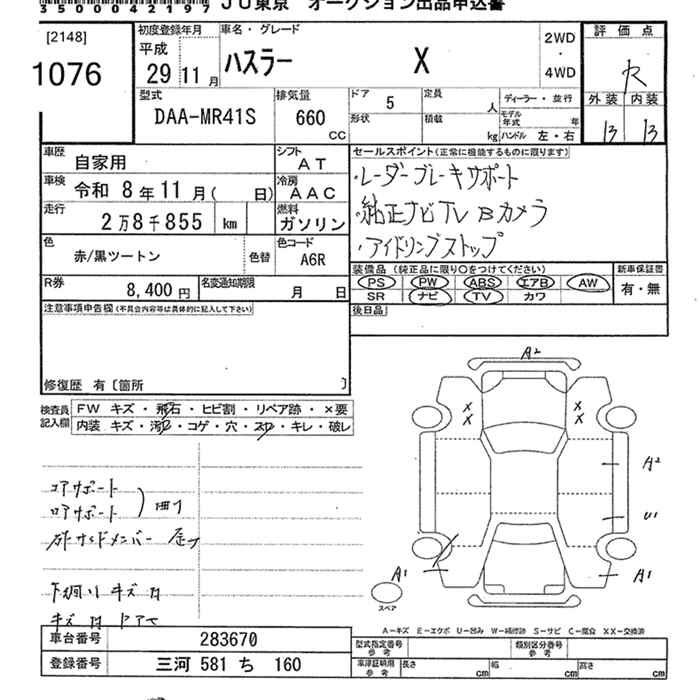 3500042197 JU東京 オークション出品申込書
[2148]
1076
初度登録年月
平成
29 11 月
車名・グレード
ハスラー X
2WD
・
4WD
評価点
R
外装 内装
B B
型式
DAA-MR41S
排気量
660
CC
ドア 5
形状
定員
人
積載
kg
ディーラー・並行
モデル
年式
年
ハンドル 左・右
車歴
自家用
シフト
AT
車検
令和 8年11月( 日)
冷房
AAC
走行
2万8千855 km
燃料
ガソリン
色
赤/黒ツートン
色替
色コード
A6R
R券
8,400 円
名変通知期限
月 日
セールスポイント(正常に機能するものに限ります)
・レーダーブレーキサポート
・純正ナビTV Bカメラ
・アイドリングストップ
装備品(純正品に限り○をつけてください)
PS PW ABS エアB AW
SR ナビ TV カワ
新車保証書
有・無
後日品
注意事項申告欄(不具合内容等は具体的に記入して下さい)
修復歴 有〔箇所 〕
検査員
記入欄
FW キズ・飛石・ヒビ割・リペア跡・×要
内装 キズ・汚れ・コゲ・穴・スレ・キレ・破レ
コアサポート
ロアサポート
下廻り キズ
キズ
A2
X
X
X
X
A2
U1
A1
A1
スペア
A―キズ E―エクボ U―凹み W―補修跡 S―サビ C―腐食 XX―交換済
車台番号
283670
登録番号
三河 581 ち 160
型式指定番号
参考
類別区分番号
参考
車庫証明用
参考
長さ
cm
幅
cm
高さ
cm